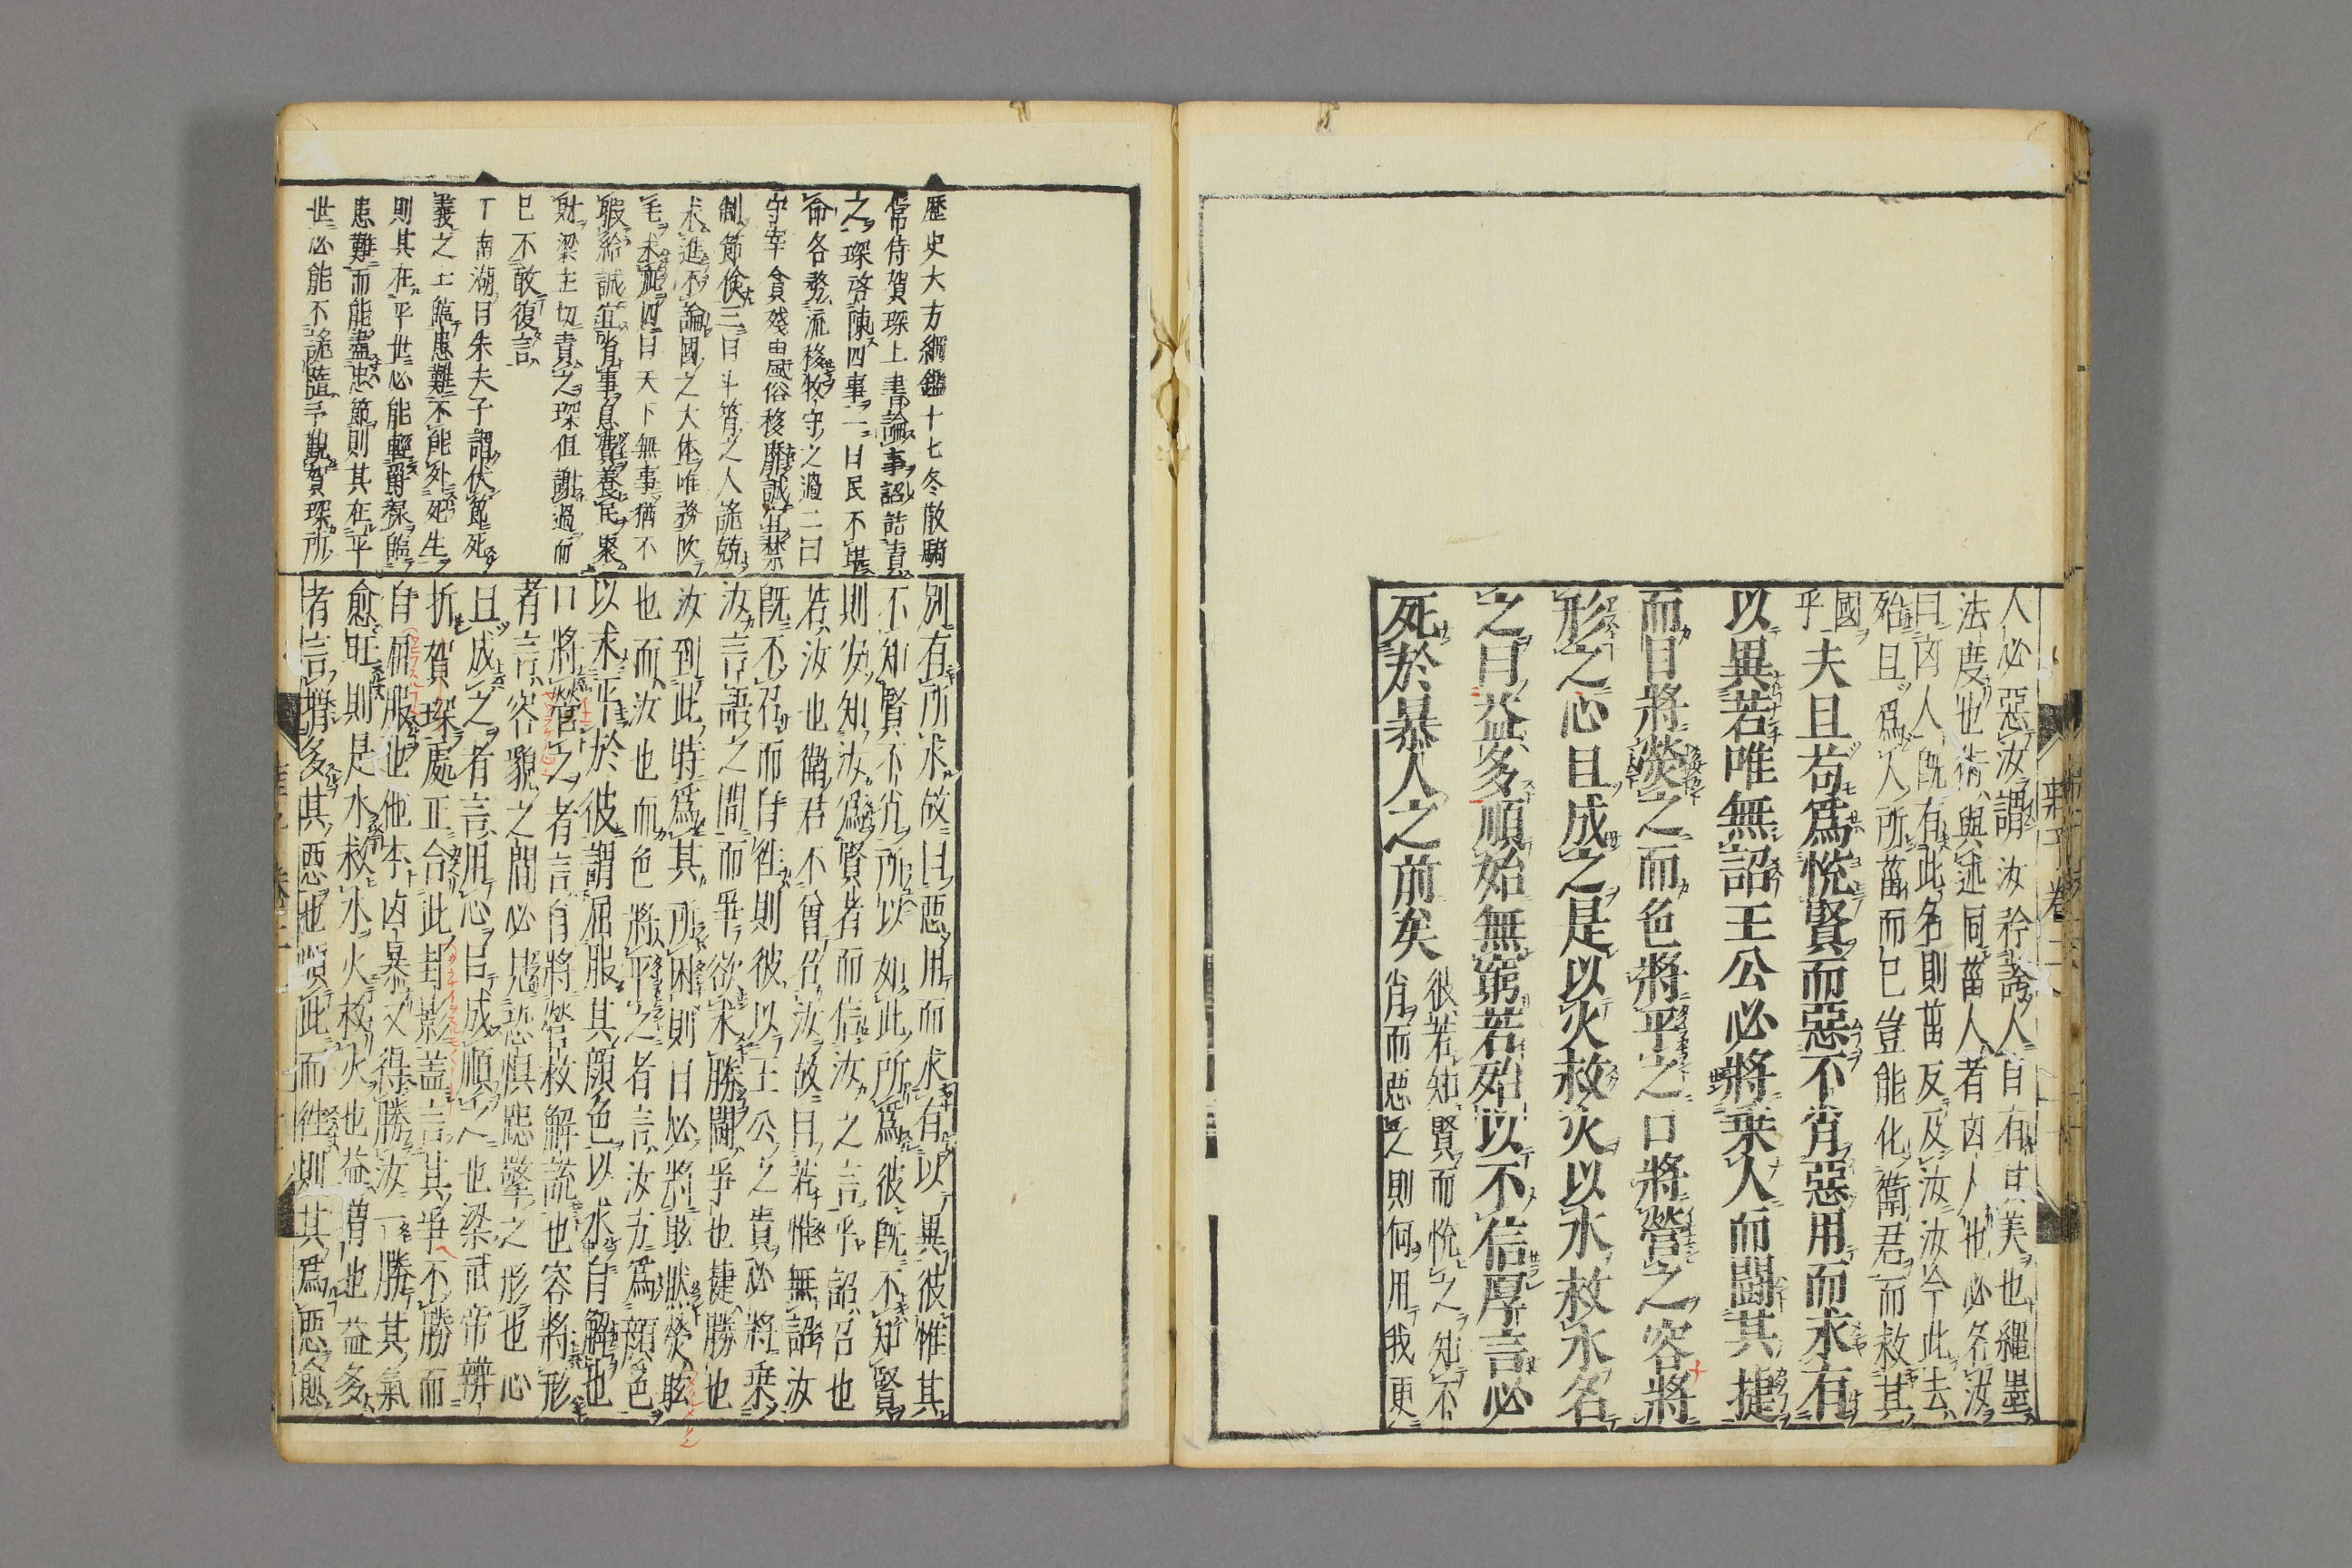 人必惡汝謂汝矜誇人自有其美也繩墨
法度也術與述同菑人者凶人也必名汝
曰凶人既有此名則菑反及汝汝今此去
殆且爲人所菑而已豈能化衛君而救其
國乎
夫且苟爲悅賢而惡不肖惡用而求有
以異若唯無詔王公必將乗人而鬪其捷
而目將熒之而色將平之口將營之容將
形之心且成之是以火救火以水救水名
之曰益多順始無窮若殆以不信厚言必
死於暴人之前矣
彼若知賢而悅之知不
肖而惡之則何用我更
歷史大方綱鑑十七冬散騎
常侍賀琛上書論事詔詰責
之琛啓陳四事一曰民不堪
命各務流移牧守之過二曰
守宰貪殘由風俗侈靡誠宜禁
制節儉三曰斗筲之人詭競
求進不論國之大体唯務吹
毛求疵四曰天下無事猶不
暇給誠宜省事息費養民聚
財梁主切責之琛但謝過而
已不敢復言
丁南湖曰朱夫子謂伏節死
義之士臨患難不能外死生
則其在平世必能輕爵祿臨
患難而能盡忠節則其在平
世必能不詭隨予觀賀琛所
別有所求故曰惡用而求有以異彼惟其
不知賢不肖所以如此所爲彼既不知賢
則安知汝爲賢者而信汝之言乎詔召也
若汝也衛君不曾召汝故曰若惟無詔汝
既不召而自徃則彼以王公之貴必將乗
汝言語之間而爭欲求勝鬪爭也捷勝也
汝到此時爲其所困則目必將眩眹熒眩
也而汝也而色將平之者言汝方爲顏色
以求平於彼謂屈服其顏色以求自解也
口將營之者言自將營救解說也容將形
者言容貌之間必見恐懼跽擎之形也心
且成之者言用心已成順之也梁武帝辨
折賀琛處正合此封影盖言其爭不勝而
自𢓜服也他本凶暴又得勝汝一勝其氣
愈旺則是水救水火救火也益增也益多
者言增多其惡也順此而徃則其爲惡愈